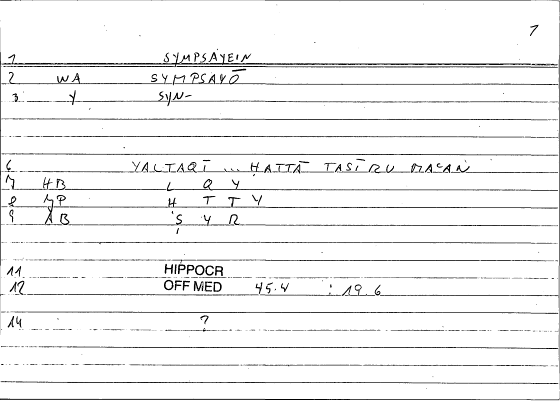 7
1 SYMPSAYEIN
2 WA SYMPSAYŌ
3 Y SYN-
6 YALTAQĪ ... ḤATTĀ TAṢĪRU MAʿAN
7 HB L Q Y
8 MP Ḥ T T Y
9 AB Ṣ Y R
11 HIPPOCR
12 OFF MED 45.4 : 19.6
14 ?